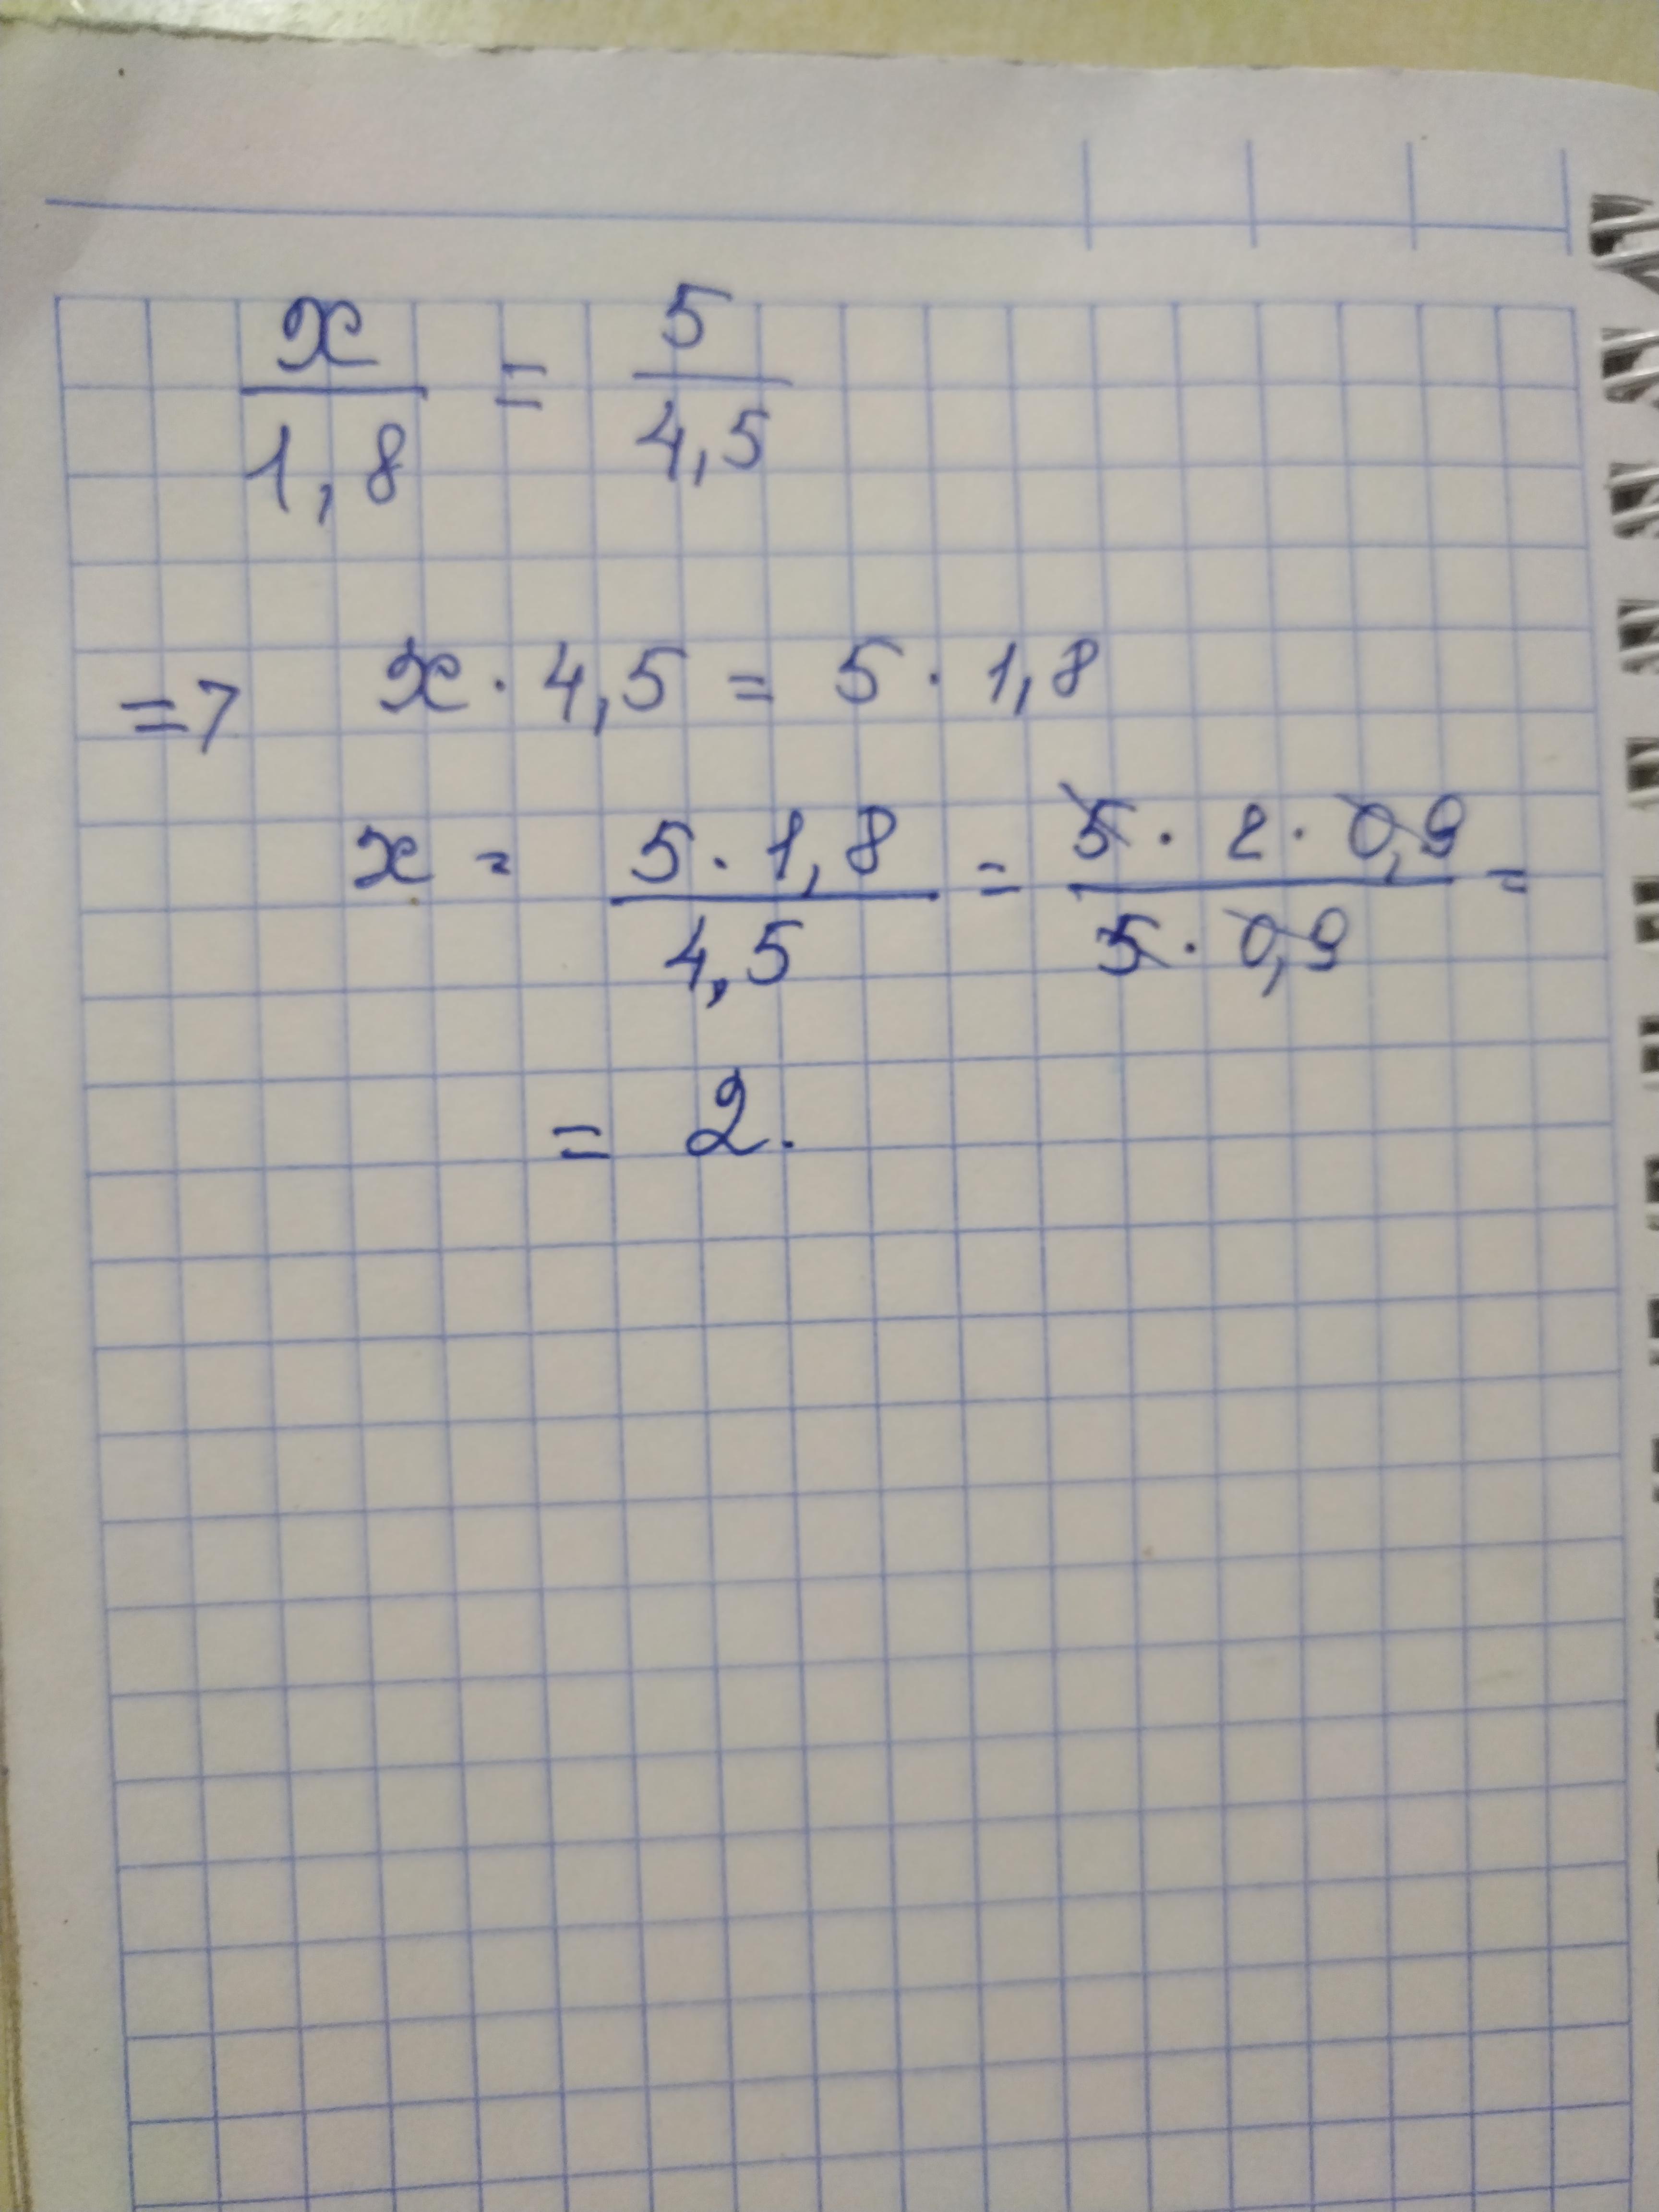 x/1,8 = 5/4,5
=> x · 4,5 = 5 · 1,8
x = 5 · 1,8/4,5 = 5 · 2 · 0,9/5 · 0,9 =
= 2.